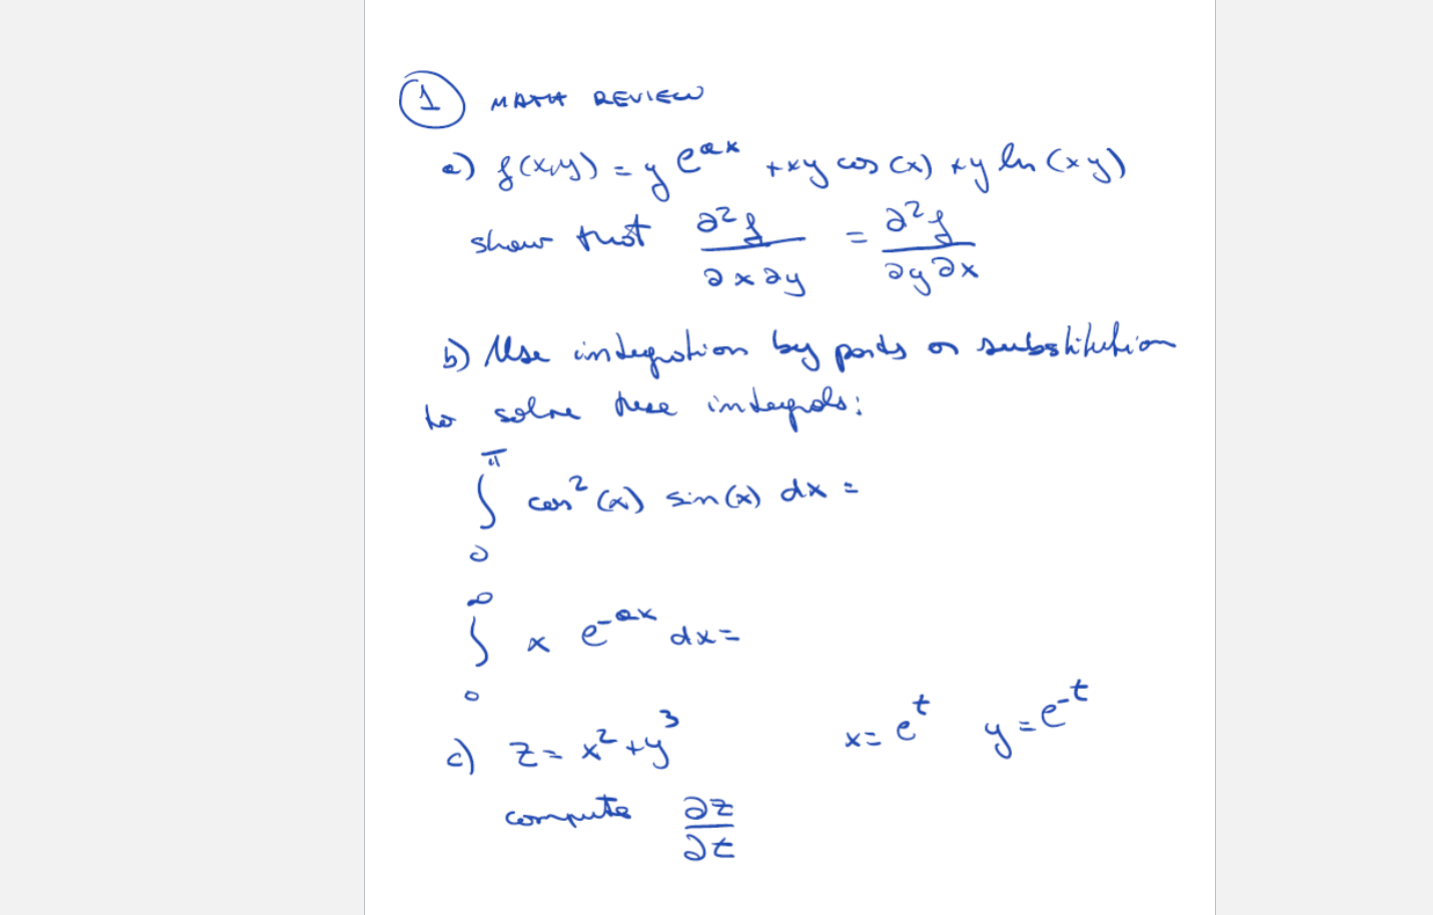 ① MATH REVIEW
a) f(x,y) = y e^{ax} + xy cos(x) + y ln(xy)
show that ∂²f/∂x∂y = ∂²f/∂y∂x
b) Use integration by parts or substitution
to solve these integrals:
∫₀^π cos²(x) sin(x) dx =
∫₀^∞ x e^{-ax} dx =
c) z = x² + y³ x = e^t y = e^{-t}
compute ∂z/∂t